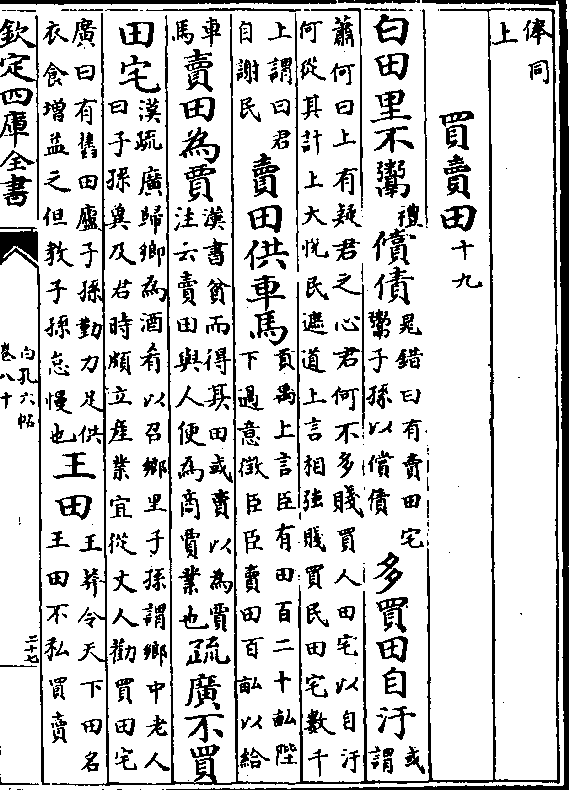 俸同
上
買賣田十九
白田里不鬻禮償債晁錯曰有賣田宅鬻子孫以償債多買田自汙或謂
蕭何曰上有疑君之心君何不多賤買人田宅以自汙何從其計上大悅民遮道上言相強賤買民田宅數千
上謂曰君自謝民賣田供車馬貢禹上言臣有田百二十畆陛下過意徵臣臣賣田百畆以給
車馬賣田為賈漢書貧而得其田或賣以為賈注云賣田與人便為商賈業也疏廣不買
田宅漢疏廣歸鄉為酒肴以召鄉里子孫謂鄉中老人曰子孫兾及君時頗立産業宜從丈人勸買田宅
廣曰有舊田廬子孫勤力足供衣食增益之但教子孫怠慢也王田王莽令天下田名王田不私買賣
欽定四庫全書
白孔六帖
卷八十
二十七